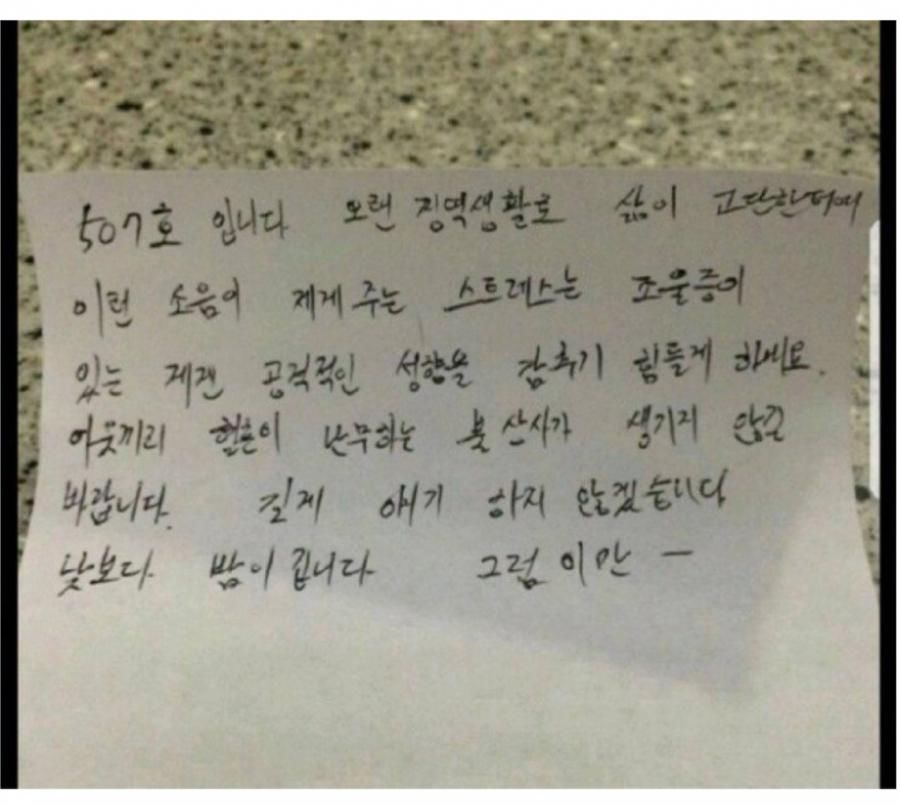 507호 입니다 오랜 징역생활로 삶이 고단한터에
이런 소음이 제게 주는 스트레스는 조울증이
있는 제겐 공격적인 성향을 감추기 힘들게 하네요.
이웃끼리 혈흔이 난무하는 불상사가 생기지 않길
바랍니다. 길게 얘기 하지 않겠습니다
낮보다 밤이 깁니다 그럼 이만 ー